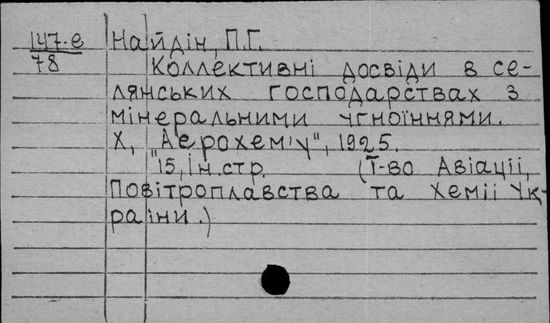 147-е Найдін, П.Г.
78 Коллективні досвіди в се-
лянських господарствах з
мінеральними угноїннями.
Х, „Аерохем'у", 1925.
15, ін.стр. (Т-во Авіації,
Повітроплавства та Хемії Ук-
раїни.)